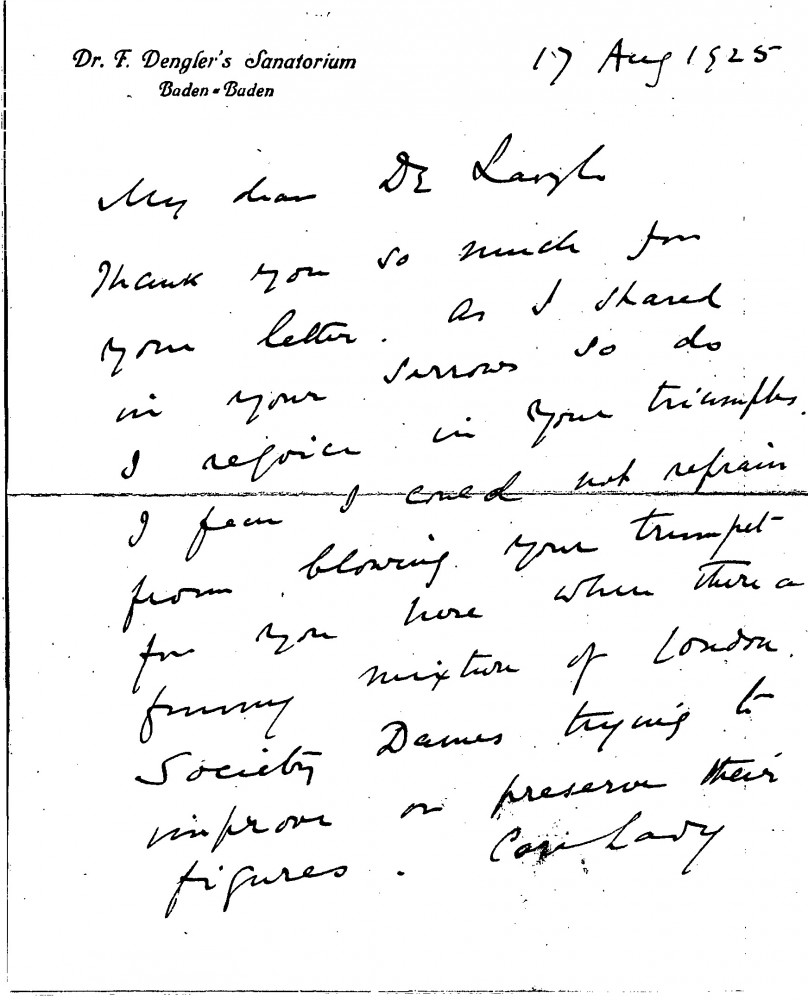 Dr. F. Dengler's Sanatorium
Baden-Baden
17 Aug 1925
My dear De Laszlo
Thank you so much for
your letter. As I shared
in your sorrows so do
I rejoice in your triumphs.
I fear I could not refrain
from blowing your trumpet
for you here when there a
funny mixture of London
Society Dames trying to
improve or preserve their
figures. Lady